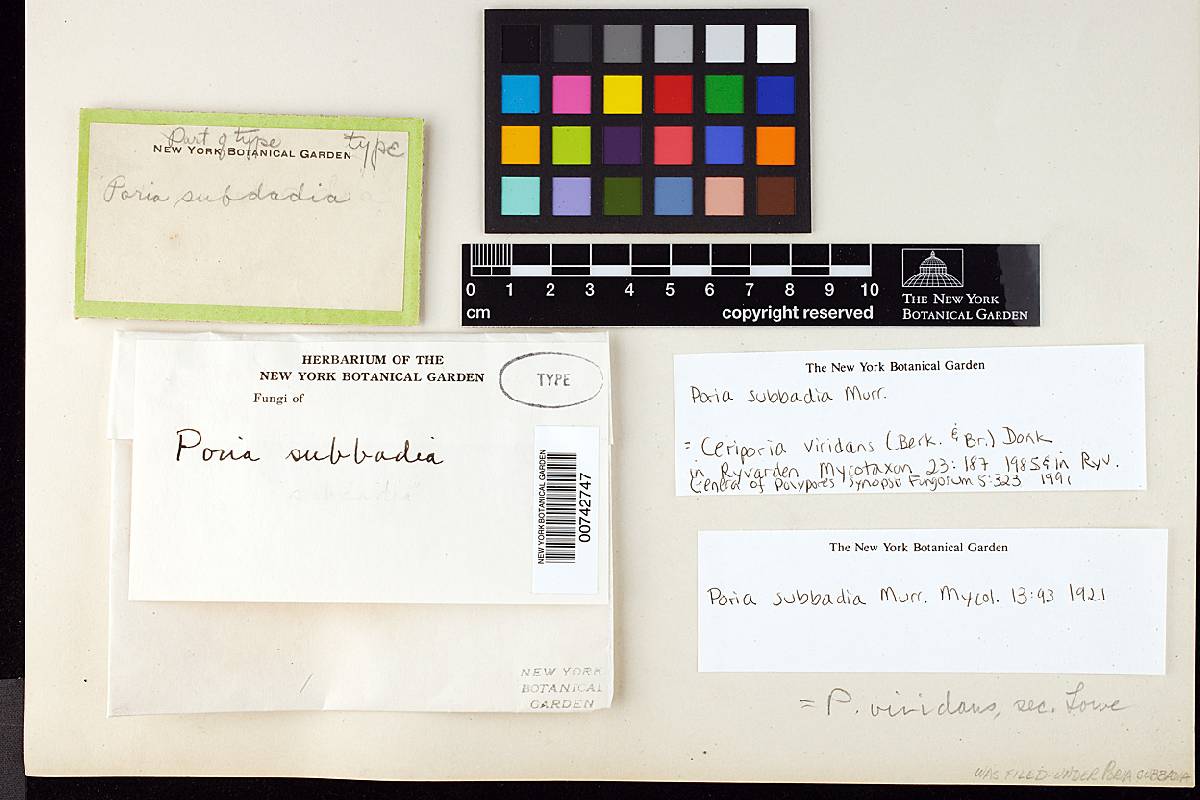 Part of type
type
NEW YORK BOTANICAL GARDEN
Poria subdadia
0 1 2 3 4 5 6 7 8 9 10
cm
copyright reserved
THE NEW YORK
BOTANICAL GARDEN
HERBARIUM OF THE
NEW YORK BOTANICAL GARDEN
Fungi of
TYPE
Poria subbadia
NEW YORK BOTANICAL GARDEN
00742747
NEW YORK
BOTANICAL
GARDEN
The New York Botanical Garden
Poria subbadia Murr.
= Ceriporia viridans (Berk. & Br.) Donk
in Ryvarden Mycotaxon 23: 187 1985 & in Ryv.
Genera of Polypores Synopsi Fungorum 5:323 1991
The New York Botanical Garden
Poria subbadia Murr. Mycol. 13:93 1921
= P. viridans, sec. Lowe
WAS FILED UNDER PORIA SUBBADIA